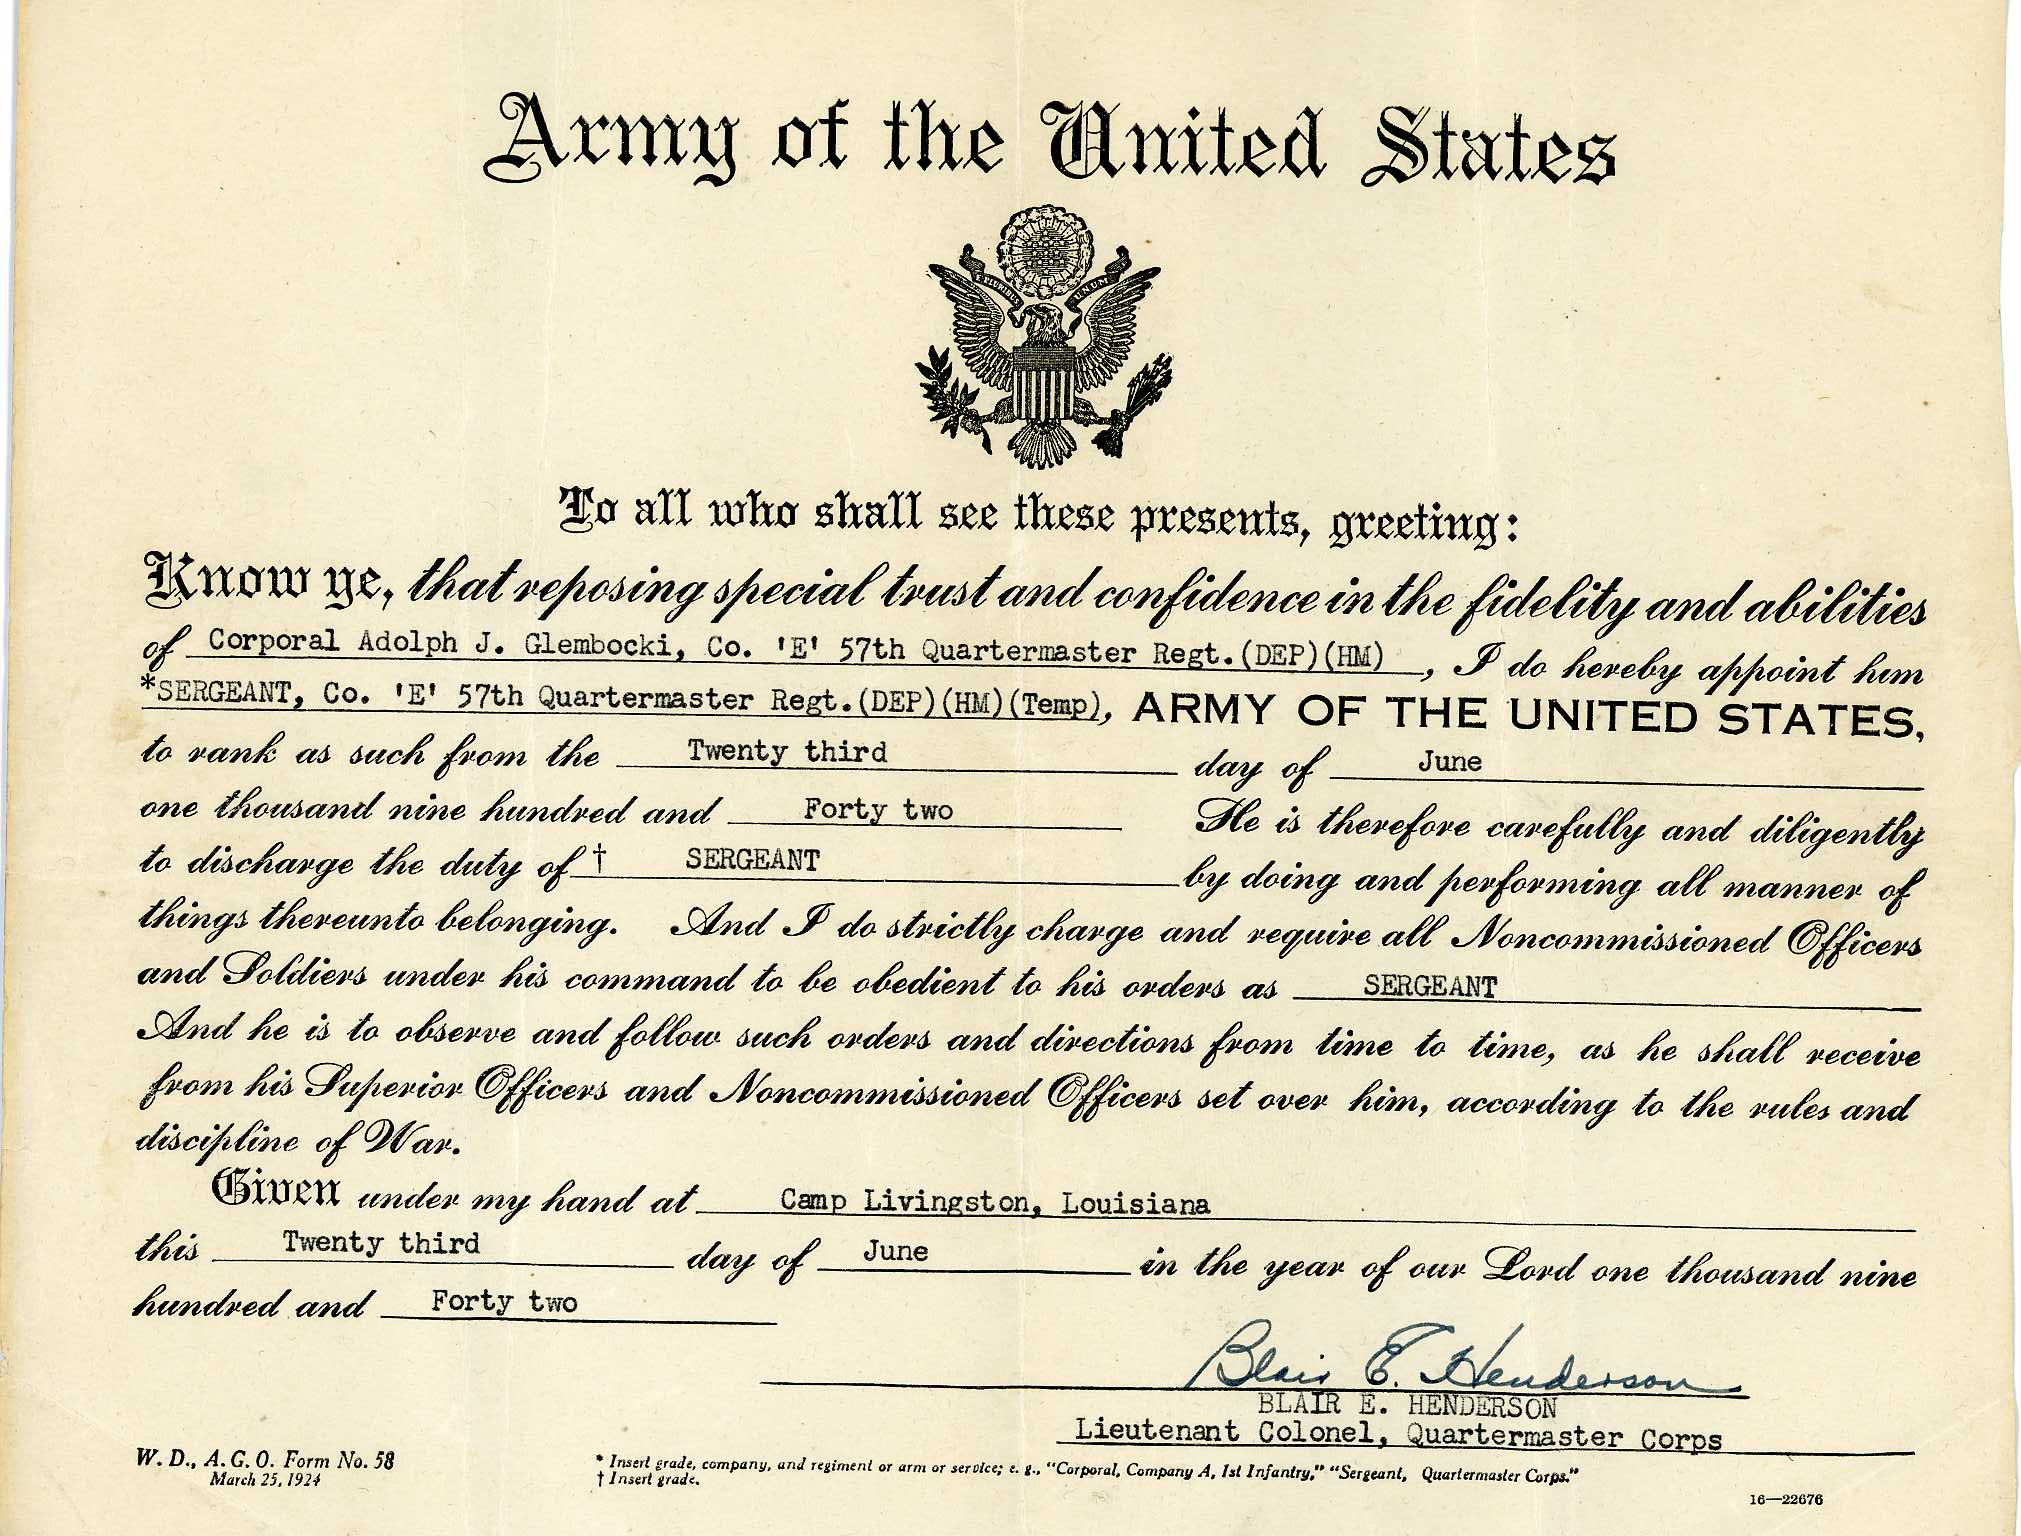 Army of the United States
E PLURIBUS UNUM
To all who shall see these presents, greeting:
Know ye, that reposing special trust and confidence in the fidelity and abilities
of Corporal Adolph J. Glembocki, Co. 'E' 57th Quartermaster Regt.(DEP)(HM) , I do hereby appoint him
*SERGEANT, Co. 'E' 57th Quartermaster Regt.(DEP)(HM)(Temp), ARMY OF THE UNITED STATES,
to rank as such from the Twenty third day of June
one thousand nine hundred and Forty two He is therefore carefully and diligently
to discharge the duty of † SERGEANT by doing and performing all manner of
things thereunto belonging. And I do strictly charge and require all Noncommissioned Officers
and Soldiers under his command to be obedient to his orders as SERGEANT
And he is to observe and follow such orders and directions from time to time, as he shall receive
from his Superior Officers and Noncommissioned Officers set over him, according to the rules and
discipline of War.
Given under my hand at Camp Livingston, Louisiana
this Twenty third day of June in the year of our Lord one thousand nine
hundred and Forty two
Blair E. Henderson
BLAIR E. HENDERSON
Lieutenant Colonel, Quartermaster Corps
W. D., A. G. O. Form No. 58
March 25, 1924
* Insert grade, company, and regiment or arm or service; e. g., "Corporal, Company A, 1st Infantry," "Sergeant, Quartermaster Corps."
† Insert grade.
16—22676